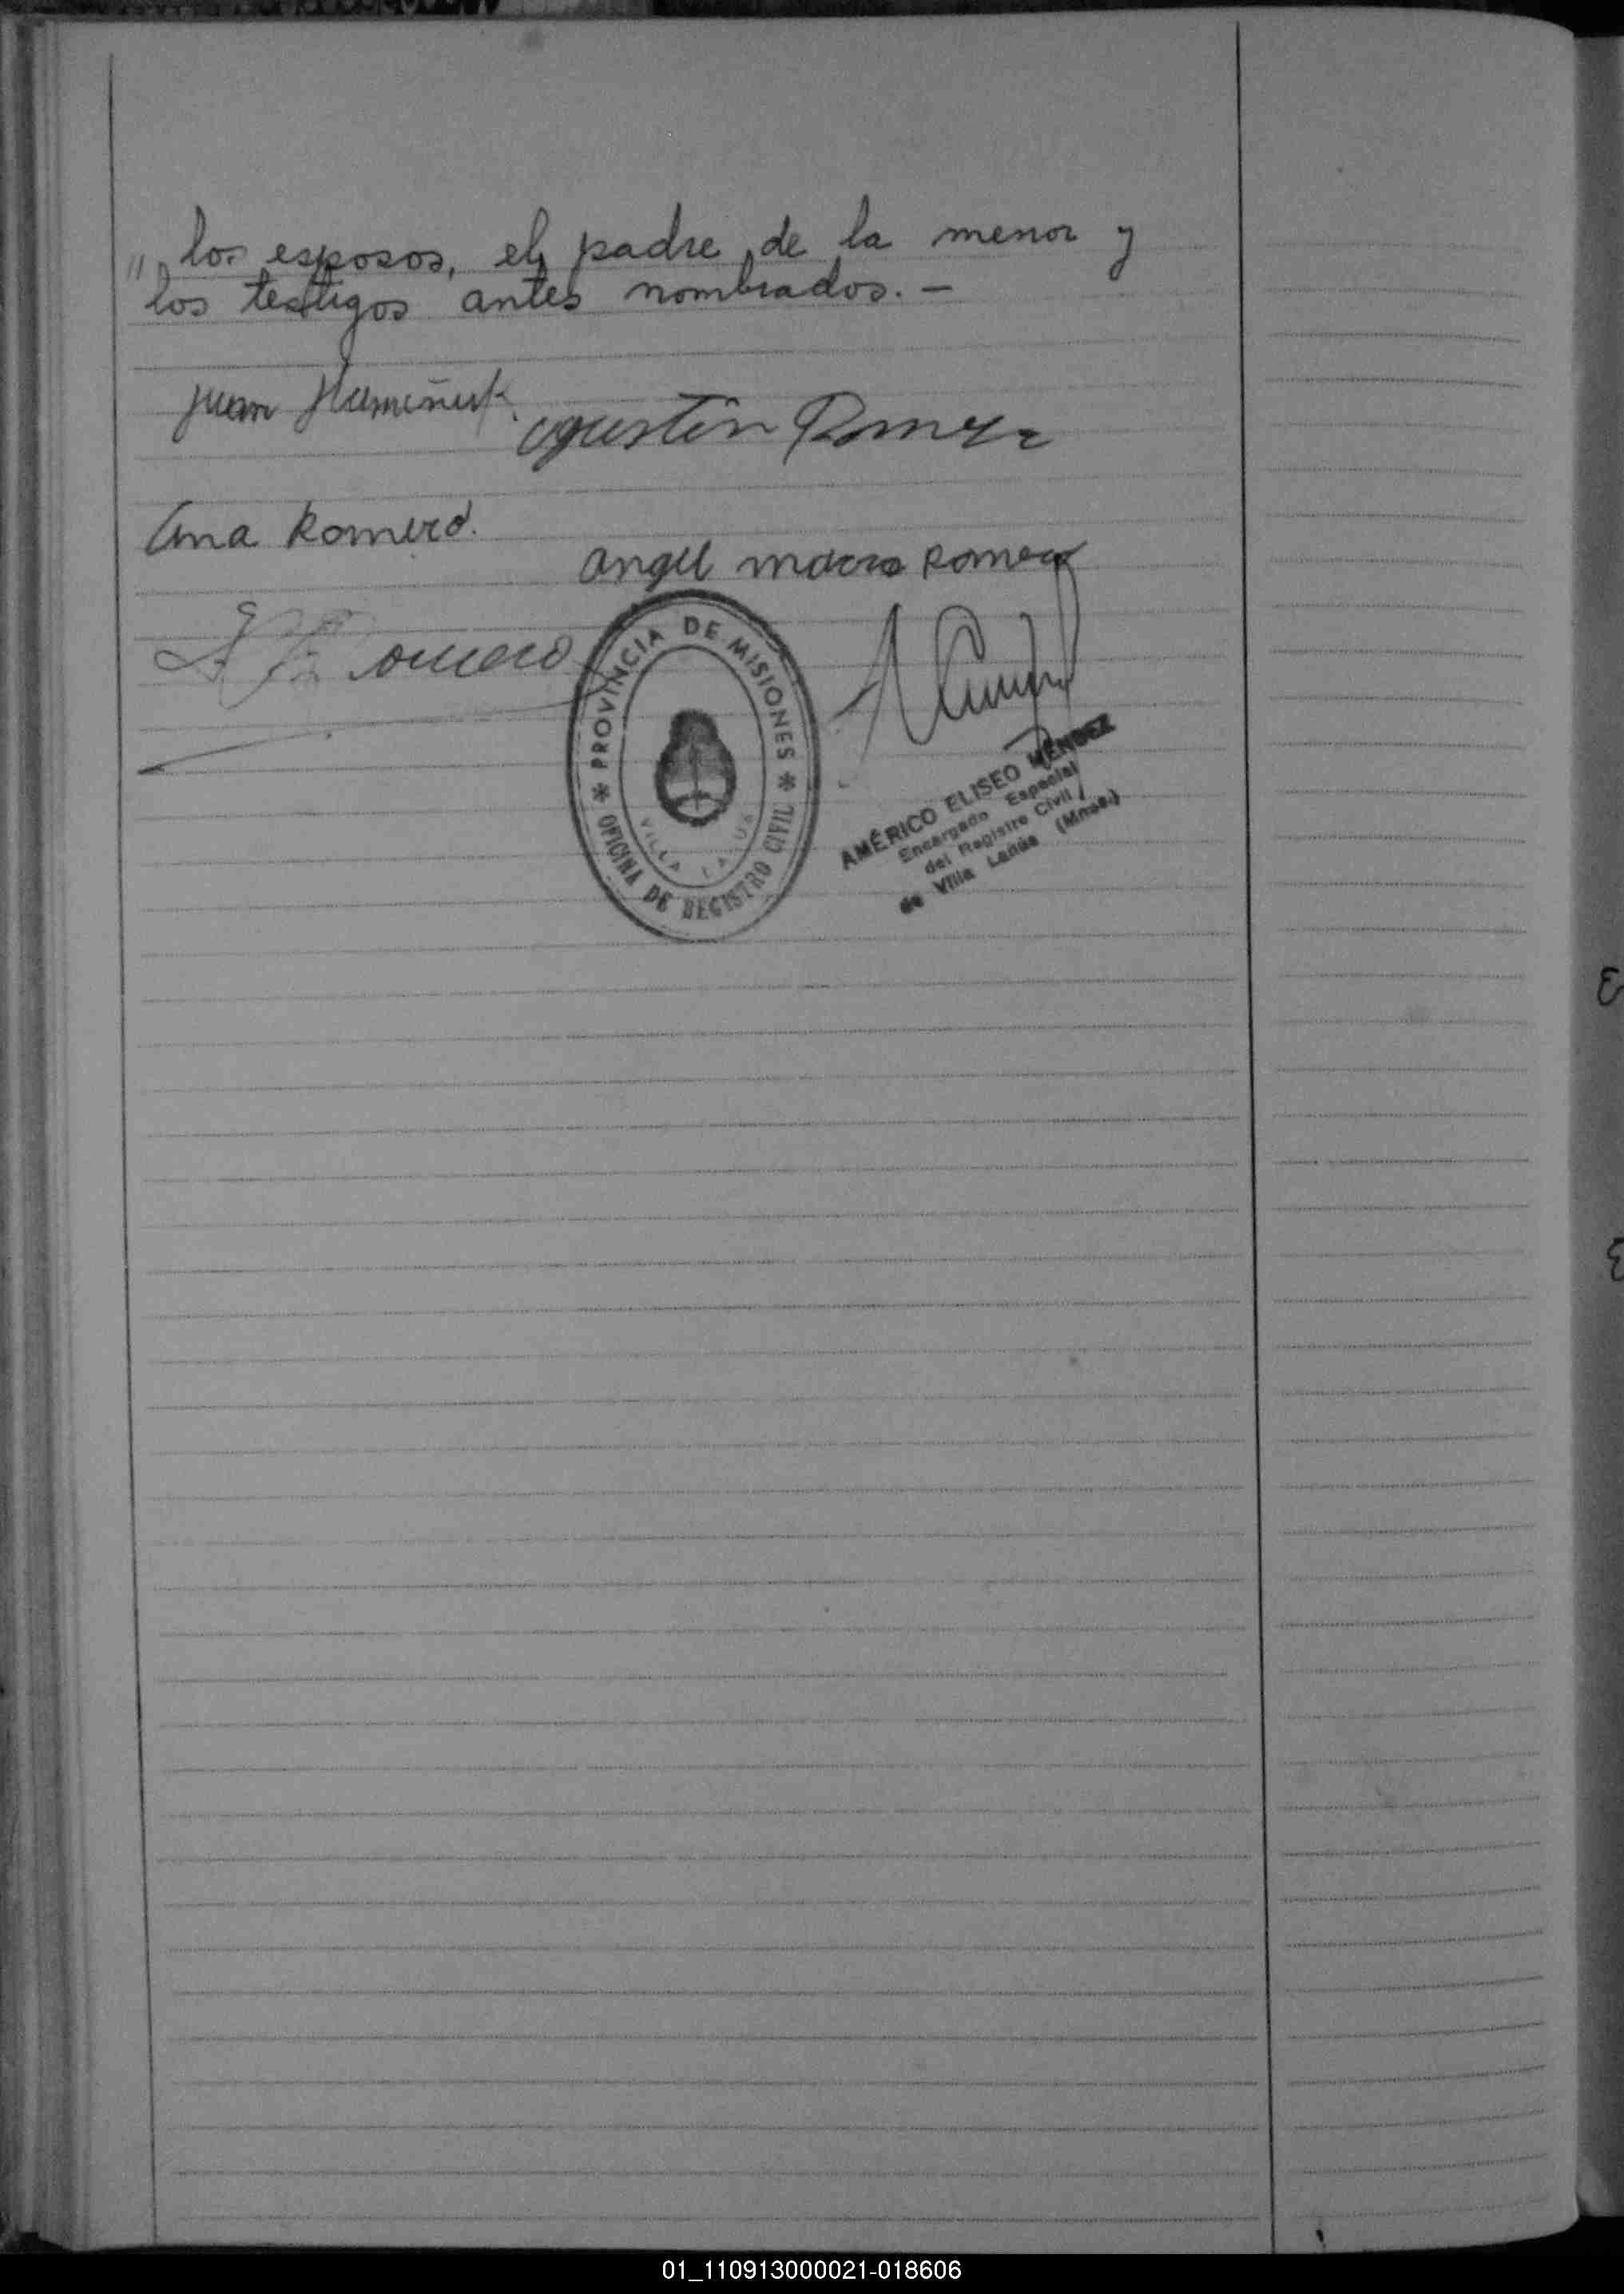 " los esposos, el padre de la menor y
los testigos antes nombrados. -
Juan
Agustin Romero
Ana Romero.
angel marcos Romero
Romero
PROVINCIA DE MISIONES
OFICINA DE REGISTRO CIVIL
VILLA LANUS
AMÉRICO ELISEO MÉNDEZ
Encargado Especial
del Registro Civil
de Villa Lanús (Mnes.)
01_110913000021-018606